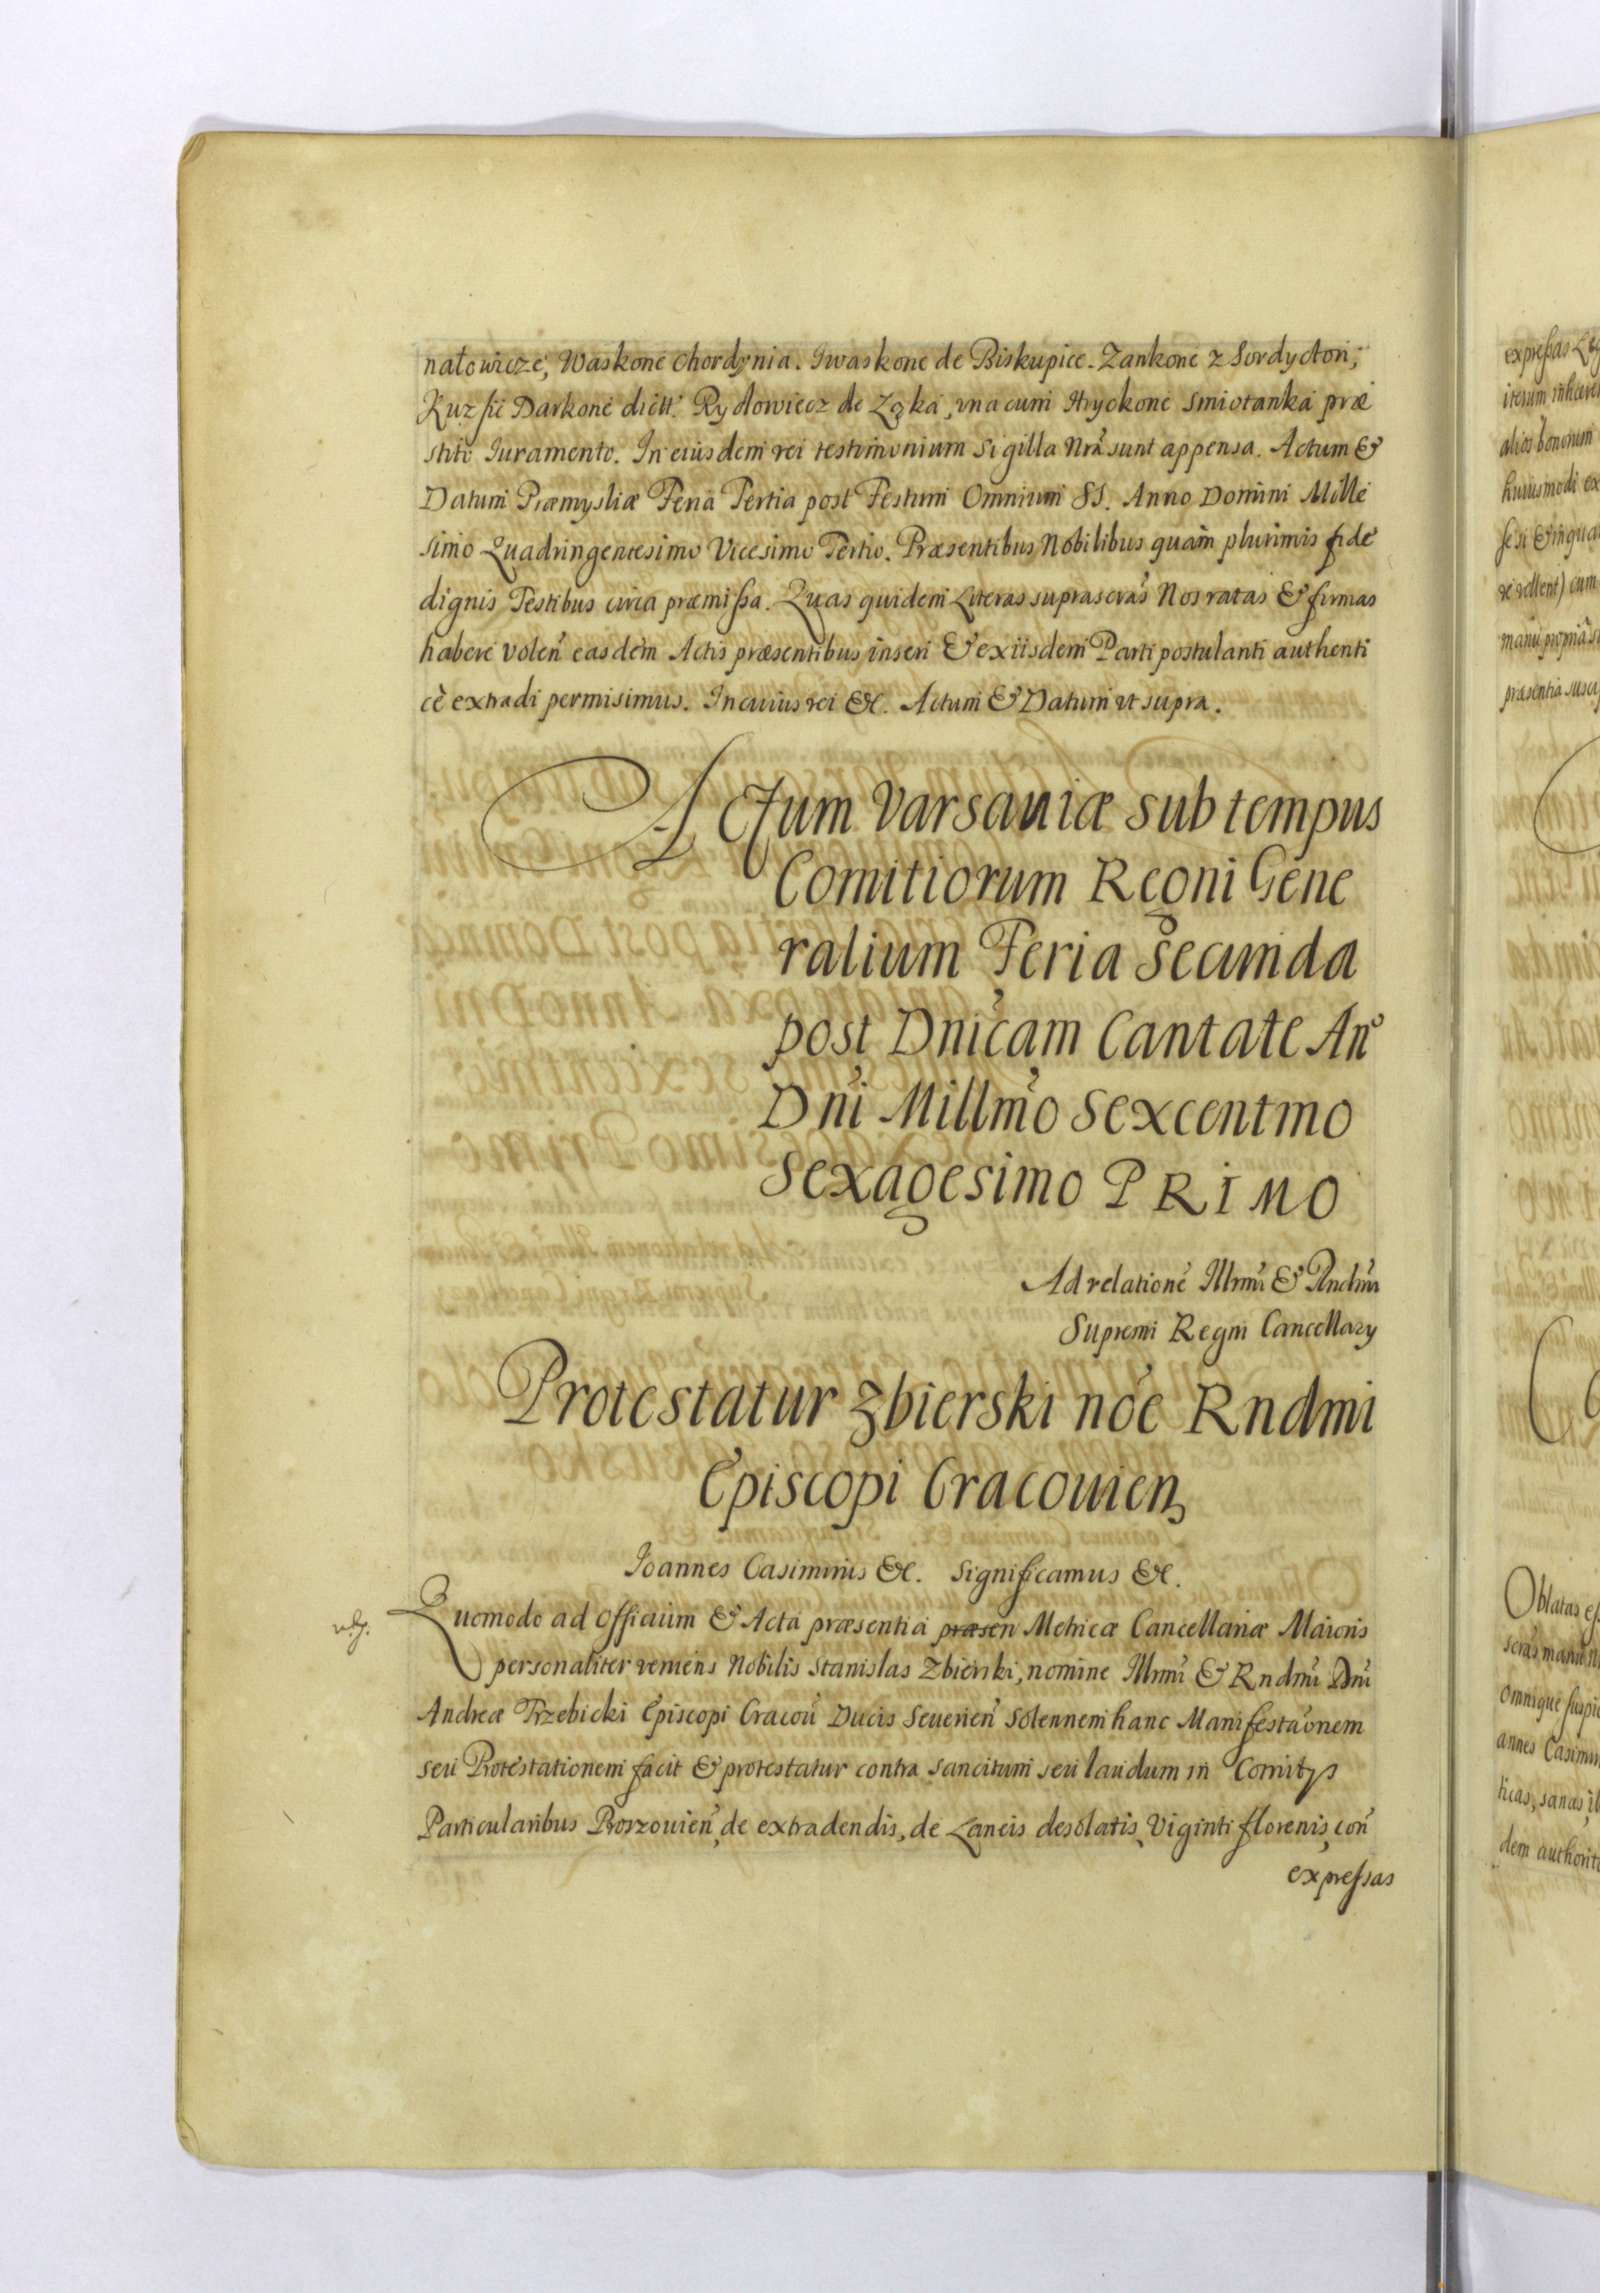 natowicze, Waskone Chordynia. Iwaskone de Biskupice. Zankone z Sordycton,
Kuzsic Darkone dictt. Rydlowiecz de Łąka, vna cum Hryckone Smiotanka præ
stito Iuramento. In eiusdem rei testimonium sigilla nra sunt appensa. Actum &
Datum Præmysliæ Feria Tertia post Festum Omnium SS. Anno Domini Mille
simo Quadringentesimo Vicesimo Tertio. Præsentibus Nobilibus quam plurimis fide
dignis Testibus circa præmissa. Quas quidem Literas suprascras Nos ratas & firmas
habere volen easdem Actis præsentibus inseri & ex iisdem Parti postulanti authenti
cè extradi permisimus. In cuius rei &c. Actum & Datum vt supra.
Actum Varsauiæ sub tempus
Comitiorum Regni Gene
ralium Feria secunda
post Dnicam Cantate Anº
Dni Millmo sexcentmo
sexagesimo PRIMO
Ad relatione Illrmi & Rndmi
Supremi Regni Cancellary
Protestatur Zbierski noe Rndmi
Episcopi Cracouien
Ioannes Casimirus &c. Significamus &c.
Quomodo ad Officium & Acta præsentia præsen Metricæ Cancellariæ Maioris
personaliter veniens Nobilis Stanislas Zbierski, nomine Illrmi & Rndmi Dni
Andreæ Trzebicki Episcopi Cracou Ducis Seuerien Solennem hanc Manifestaonem
seu Protestationem facit & protestatur contra sancitum seu laudum in Comitys
Particularibus Proszouien, de extradendis, de Laneis desolatis, Viginti florenis, con
expressas
expressas Leg
iterum inhære
alios bonorum
huiusmodi ex
se si & in qua
re vellent) cum
manu propria s
præsentia susce
Oblatas es
scras manu
omnique suspi
annes Casimir
ticas, sanas, il
dem authorit